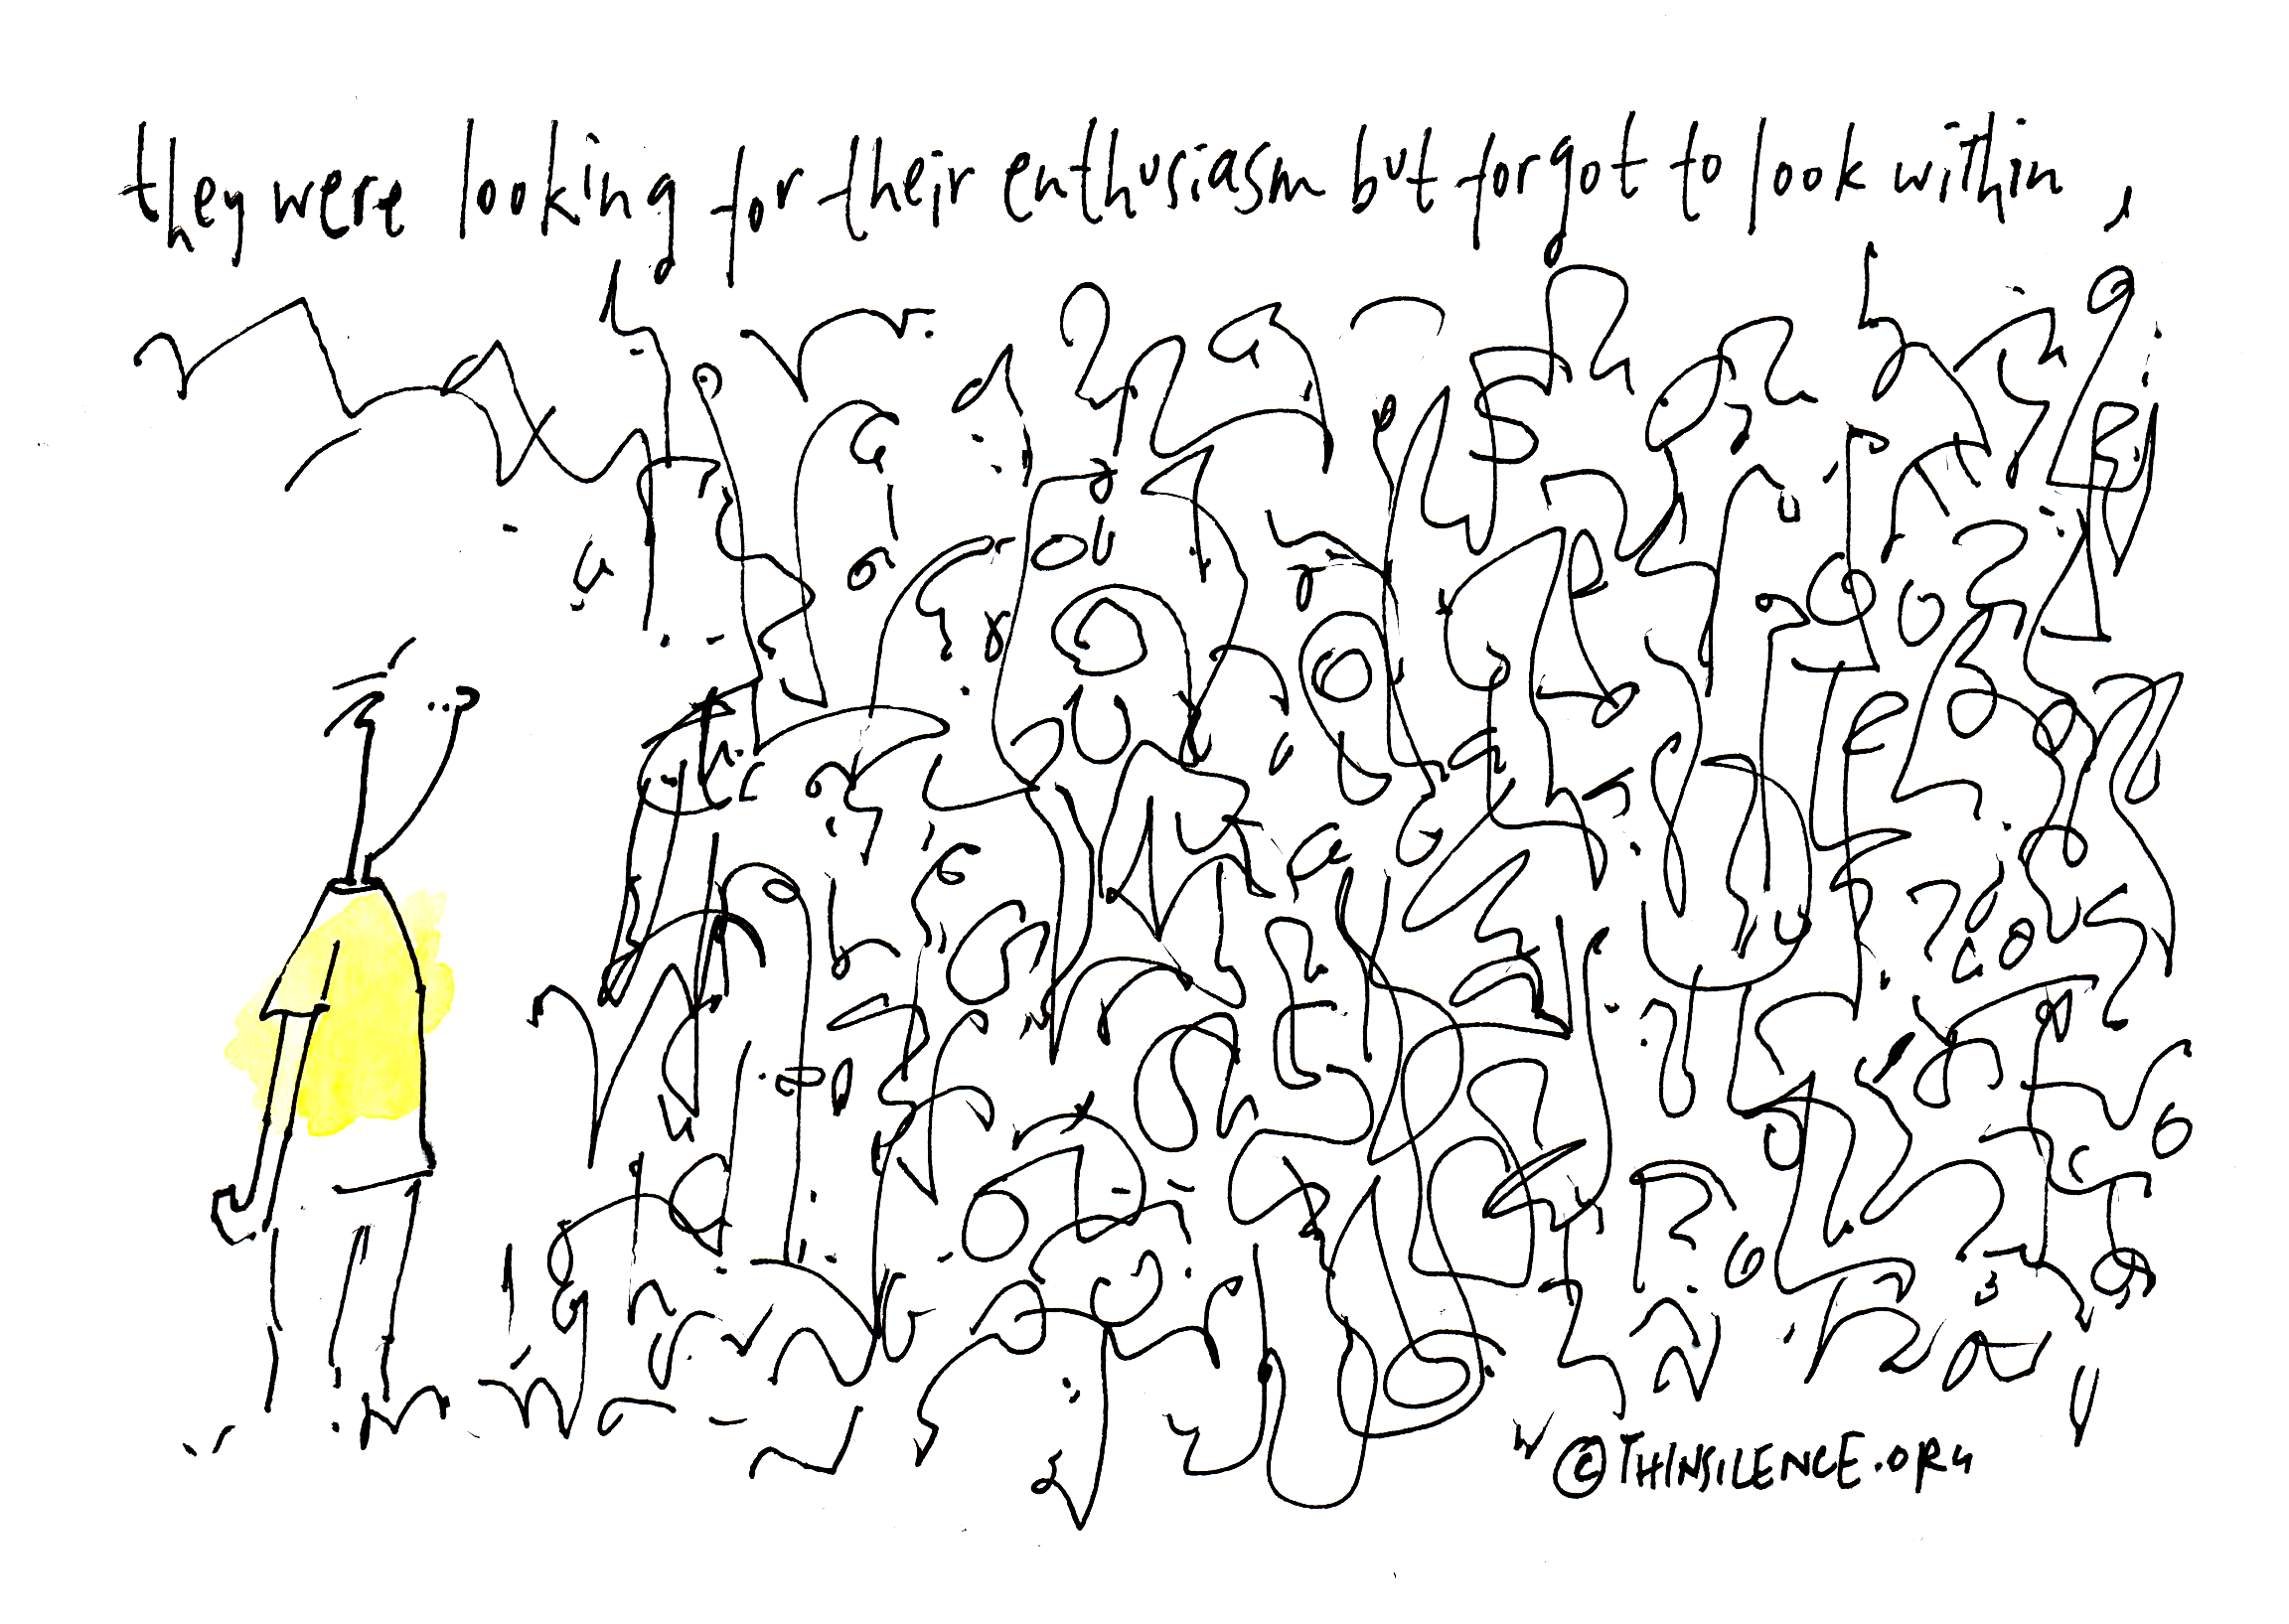 they were looking for their enthusiasm but forgot to look within,
© THINSILENCE.ORG